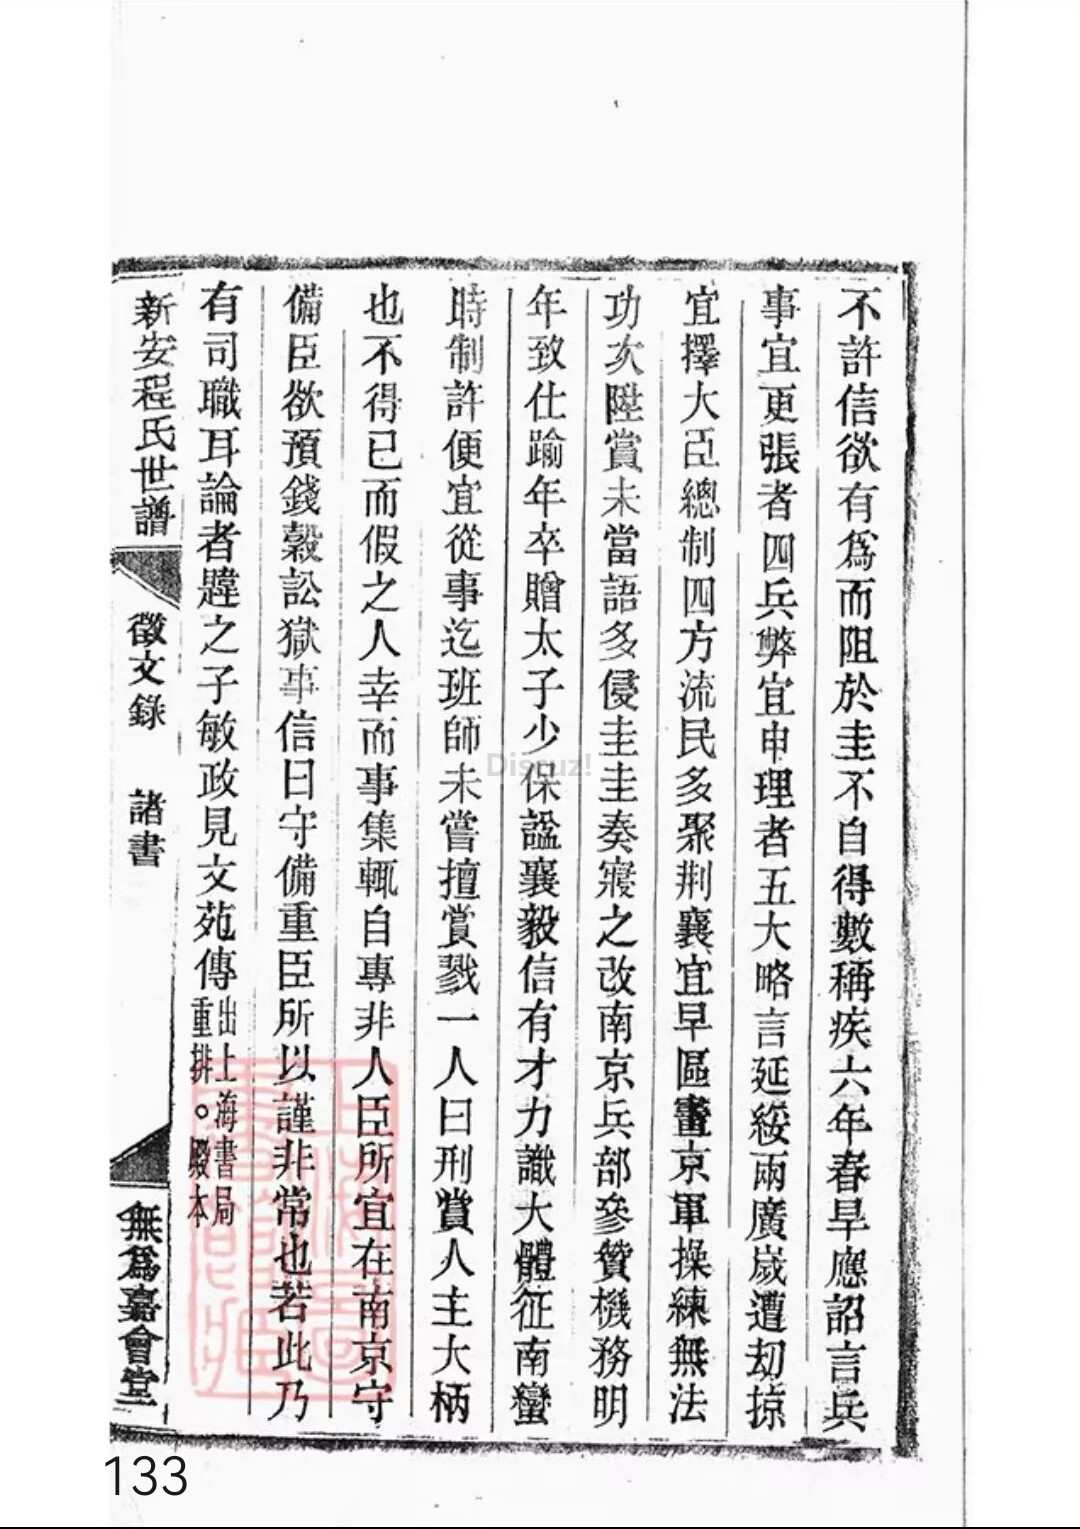 不許信欲有爲而阻於圭不自得數稱疾六年春旱應詔言兵
事宜更張者四兵弊宜申理者五大略言延綏兩廣歲遭刧掠
宜擇大臣總制四方流民多聚荆襄宜早區畫京軍操練無法
功次陞賞未當語多侵圭圭奏寢之改南京兵部參贊機務明
年致仕踰年卒贈太子少保諡襄毅信有才力識大體征南蠻
時制許便宜從事迄班師未嘗擅賞戮一人曰刑賞人主大柄
也不得已而假之人幸而事集輒自專非人臣所宜在南京守
備臣欲預錢穀訟獄事信曰守備重臣所以謹非常也若此乃
有司職耳論者韙之子敏政見文苑傳出上海書局
重排。殿本
新安程氏世譜 徵文錄 諸書 無爲嘉會堂
Discuz!
133